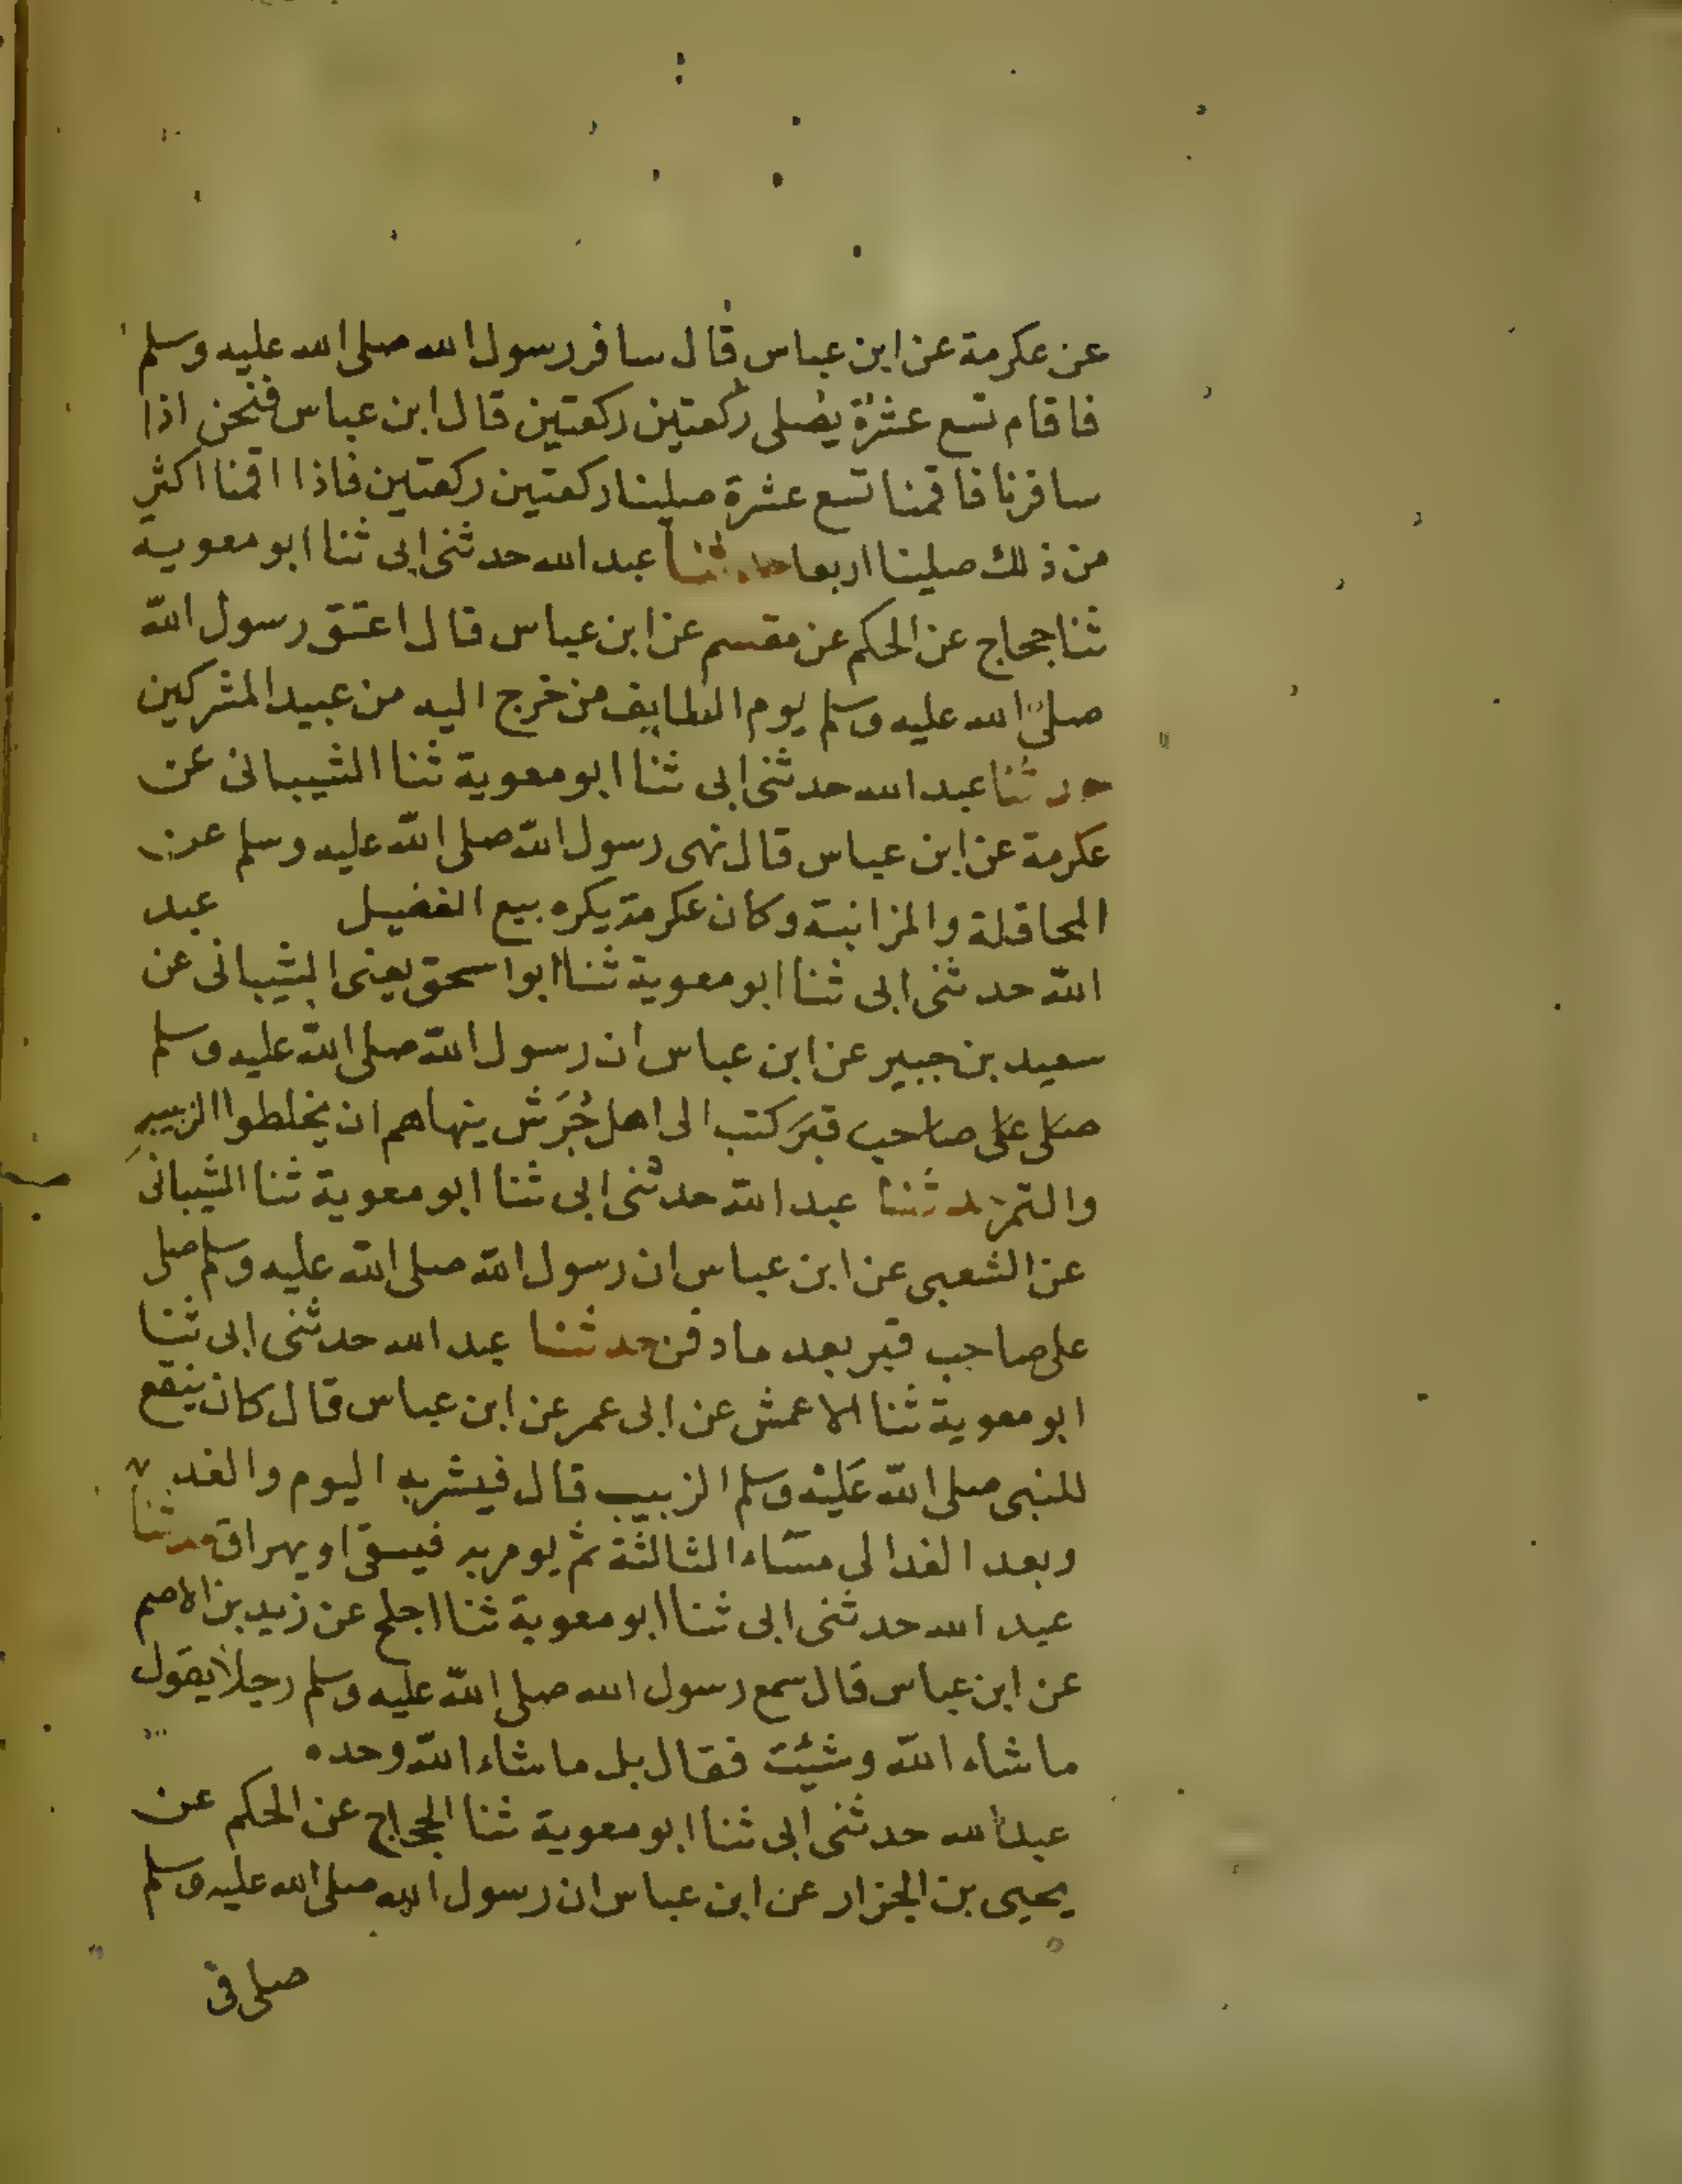 عن عكرمة عن ابن عباس قال سافر رسول الله صلى الله عليه وسلم
فاقام تسع عشرة يصلى ركعتين ركعتين قال ابن عباس فنحن اذا
سافرنا فاقمنا تسع عشرة صلينا ركعتين ركعتين فاذا اقمنا اكثر
من ذلك صلينا اربعا حدثنا عبد الله حدثنى ابى ثنا ابو معوية
ثنا حجاج عن الحكم عن مقسم عن ابن عباس قال اعتق رسول الله
صلى الله عليه وسلم يوم الطايف من خرج اليه من عبيد المشركين
حدثنا عبد الله حدثنى ابى ثنا ابو معوية ثنا الشيبانى عن
عكرمة عن ابن عباس قال نهى رسول الله صلى الله عليه وسلم عن
المحاقلة والمزابنة وكان عكرمة يكره بيع الفضيل عبد
الله حدثنى ابى ثنا ابو معوية ثنا ابو اسحق يعنى الشيبانى عن
سعيد بن جبير عن ابن عباس ان رسول الله صلى الله عليه وسلم
صلى على صاحب قبر كتب الى اهل جُرَش ينهاهم ان يخلطوا الزبيب
والتمر حدثنا عبد الله حدثنى ابى ثنا ابو معوية ثنا الشيبانى
عن الشعبى عن ابن عباس ان رسول الله صلى الله عليه وسلم صلى
على صاحب قبر بعد ما دفن حدثنا عبد الله حدثنى ابى ثنا
ابو معوية ثنا الاعمش عن ابى عمر عن ابن عباس قال كان ينقع
للنبى صلى الله عليه وسلم الزبيب قال فيشربه اليوم والغد
وبعد الغد الى مساء الثالثة ثم يومر به فيسقى او يهراق حدثنا
عبد الله حدثنى ابى ثنا ابو معوية ثنا اجلح عن زيد بن الاصم
عن ابن عباس قال سمع رسول الله صلى الله عليه وسلم رجلا يقول
ما شاء الله وشئت فقال بل ما شاء الله وحده
عبد الله حدثنى ابى ثنا ابو معوية ثنا الحجاج عن الحكم عن
يحيى بن الجزار عن ابن عباس ان رسول الله صلى الله عليه وسلم
صلى فى